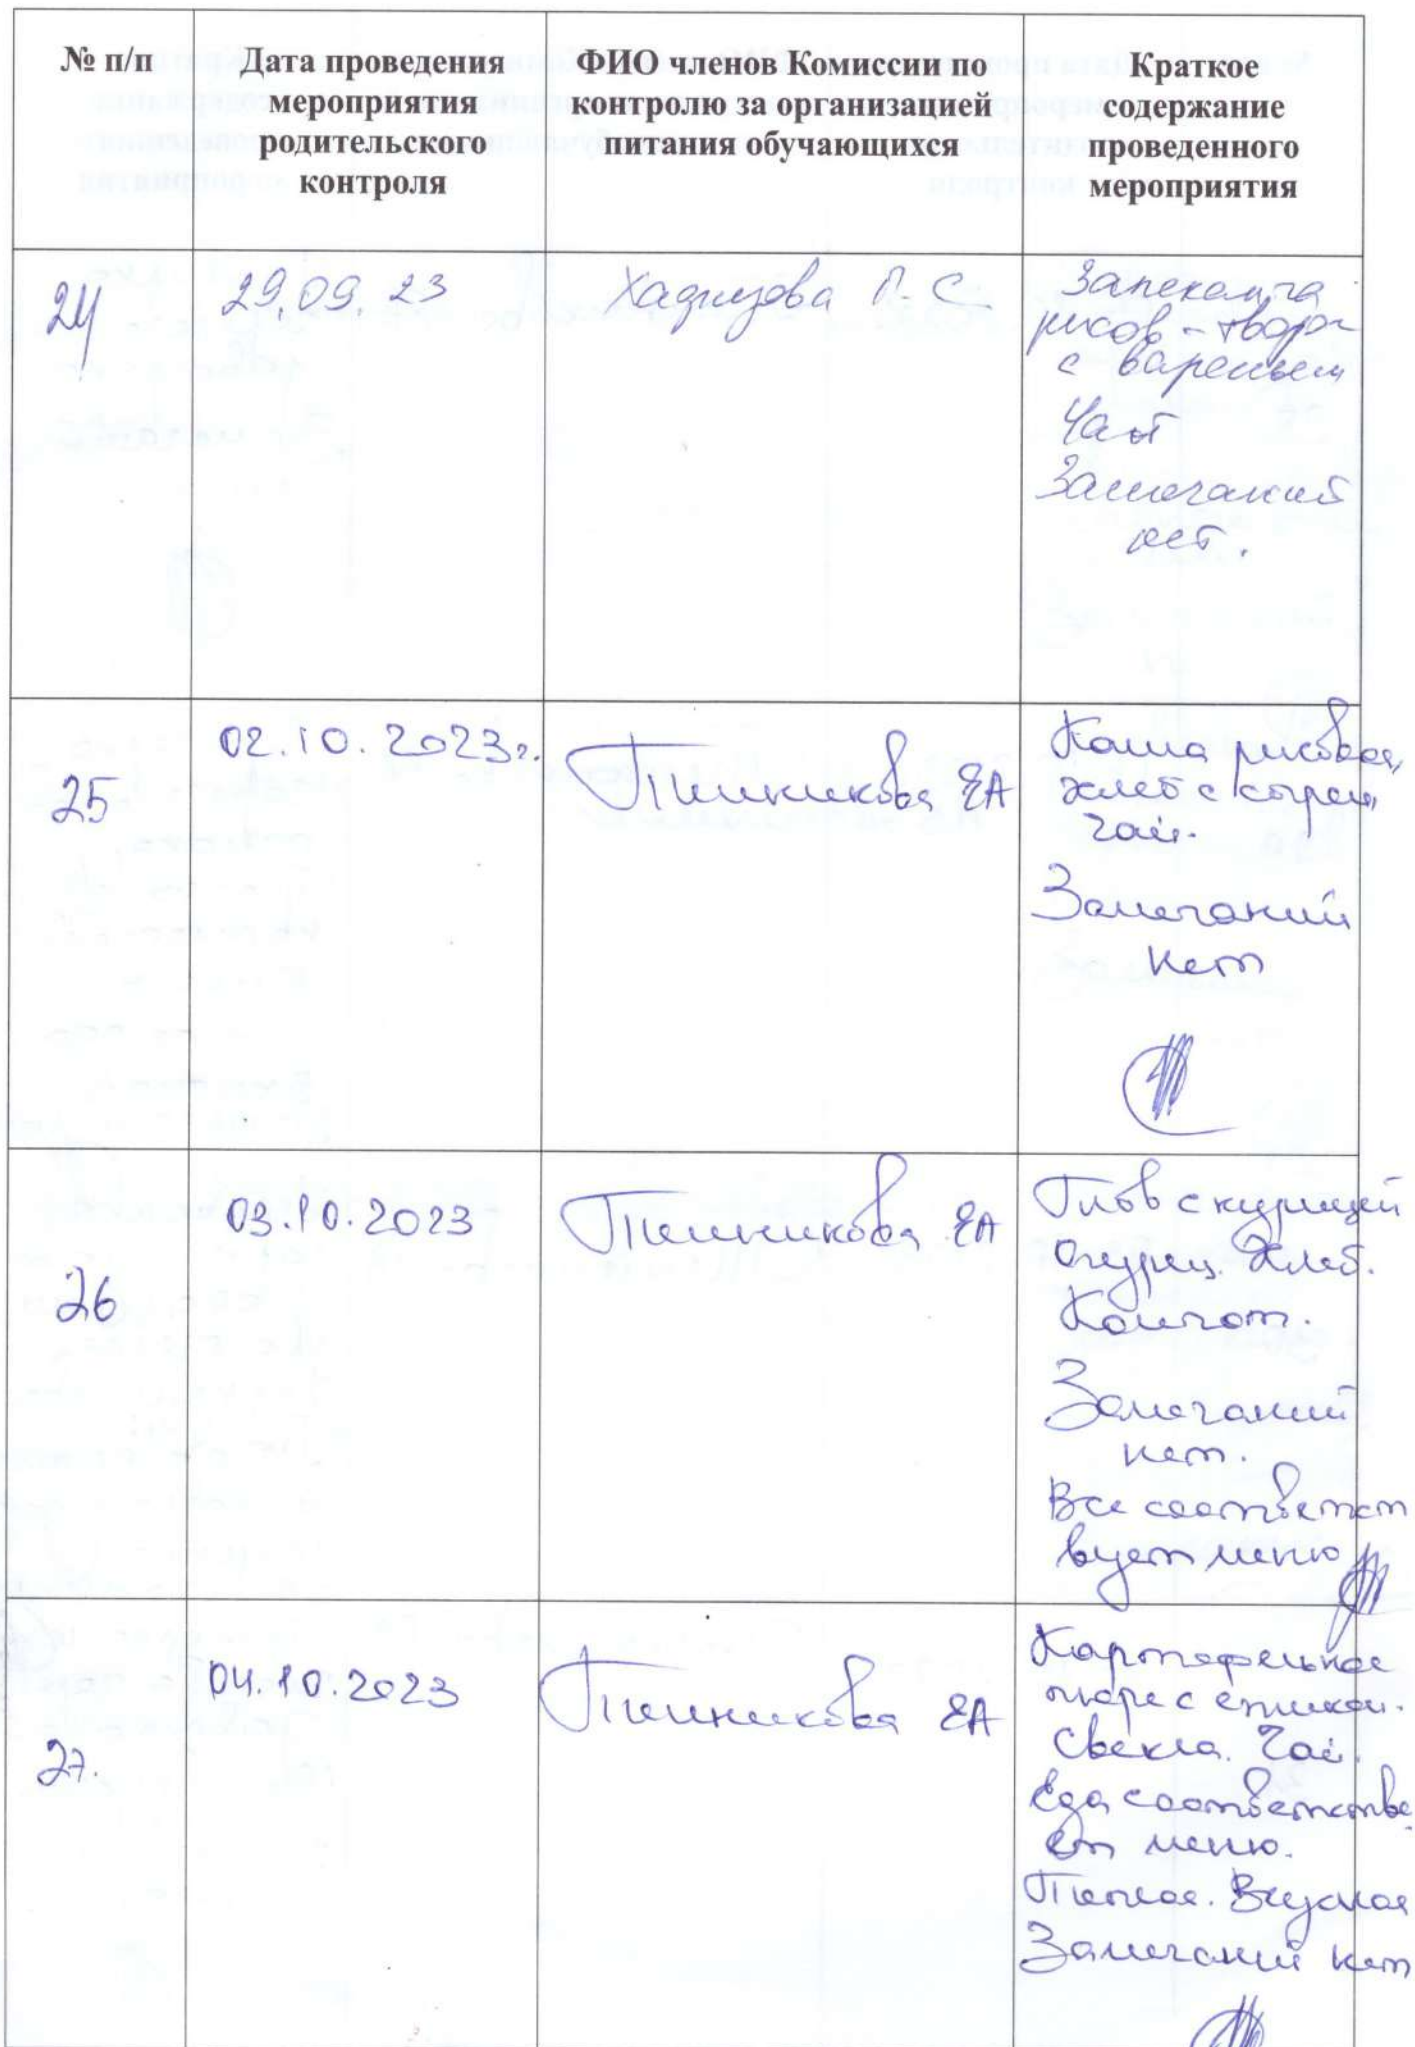 № п/п
Дата проведения
мероприятия
родительского
контроля
ФИО членов Комиссии по
контролю за организацией
питания обучающихся
Краткое
содержание
проведенного
мероприятия
24
29.09.23
П. С.
Запеканка
рисов - творог
с вареньем
Чай
Замечаний
нет.
25
02.10.2023г.
ЕА
Каша рисовая,
хлеб с сыром,
чай.
Замечаний
нет
26
03.10.2023
ЕА
Плов с курицей
Огурец. Хлеб.
Компот.
Замечаний
нет.
Все соответст
вует меню
27.
04.10.2023
ЕА
Картофельное
пюре с
Свекла. Чай.
Еда соответству
ет меню.
Теплая. Вкусная
Замечаний нет